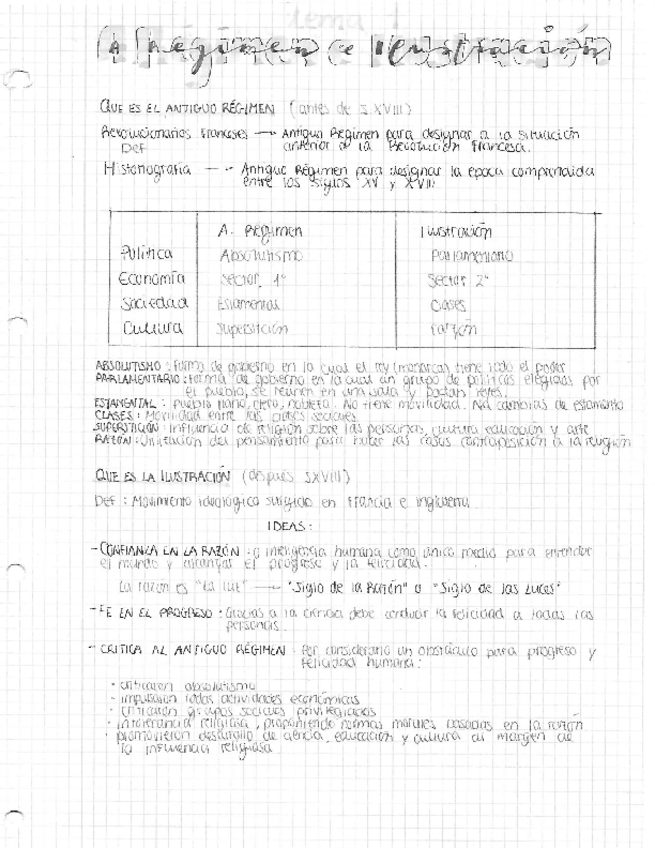 Tema 1
A. Régimen e Ilustración
QUE ES EL ANTIGUO RÉGIMEN (antes de S.XVIII)
Revolucionarios Franceses → Antiguo Régimen para designar a la situación
Def anterior a la Revolución Francesa.
Historiografía → Antiguo Régimen para designar la epoca comprendida
entre los siglos XV y XVIII
A. Régimen Ilustración
Política Absolutismo Parlamentario
Economía Sector 1º Sector 2º
Sociedad Estamental Clases
Cultura Superstición razón
ABSOLUTISMO: Forma de gobierno en la cual el rey (monarca) tiene todo el poder
PARLAMENTARIO: Forma de gobierno en la cual un grupo de politicos elegidos por
el pueblo, se reunen en una sala y
ESTAMENTAL: Pueblo llano, clero, nobleza. No tiene movilidad. No cambias de estamento
CLASES: Movilidad entre las clases sociales
SUPERSTICIÓN: Influencia de religión sobre las personas, cultura educación y arte
RAZÓN: Utilización del pensamiento para las cosas contraposición a la religión
QUE ES LA ILUSTRACIÓN (después SXVIII)
Def: Movimiento ideologico surgido en Francia e Inglaterra
IDEAS:
- CONFIANZA EN LA RAZÓN: o inteligencia humana como único medio para entender
el mundo y alcanzar el progreso y la felicidad.
La razón es "La luz" → "Siglo de la Razón" o "Siglo de las Luces"
- FE EN EL PROGRESO: Gracias a la ciencia debe conducir la felicidad a todas las
personas.
- CRITICA AL ANTIGUO RÉGIMEN: Por considerarlo un obstáculo para progreso y
felicidad humana:
· criticaron absolutismo
· impulsaron todas actividades económicas
· Criticaron grupos sociales privilegiados
· intolerancia religiosa, proponiendo normas morales basadas en la razón
· promovieron desarrollo de ciencia, educación y cultura al margen de
la influencia religiosa